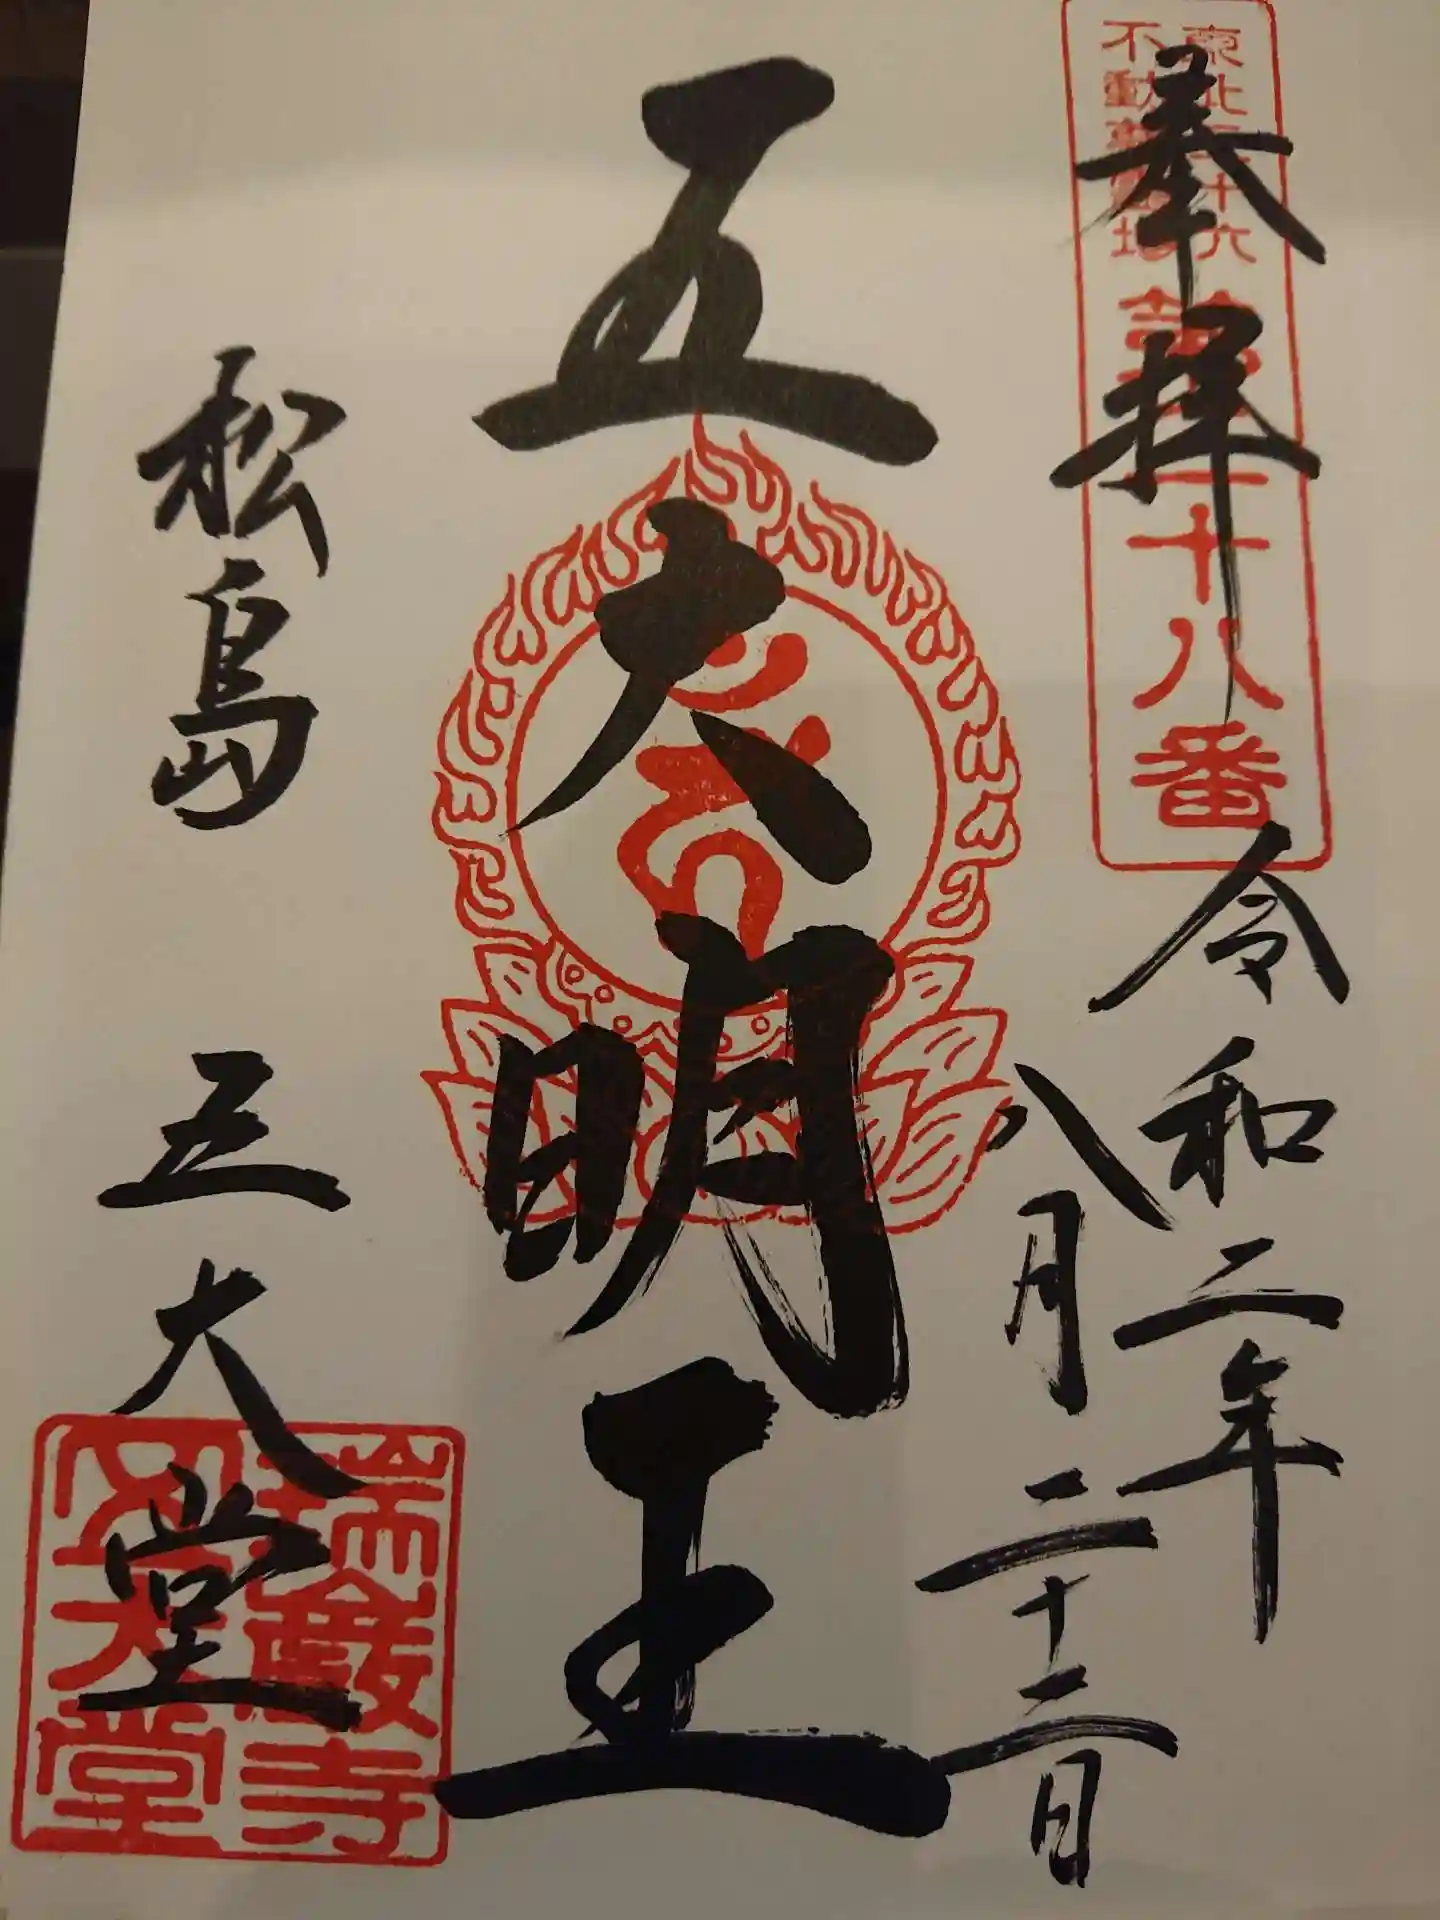 奉拝
東北三十六
不動尊霊場
第二十八番
令和二年
八月二十二日
五大明王
松島 五大堂
瑞巌寺
五大堂